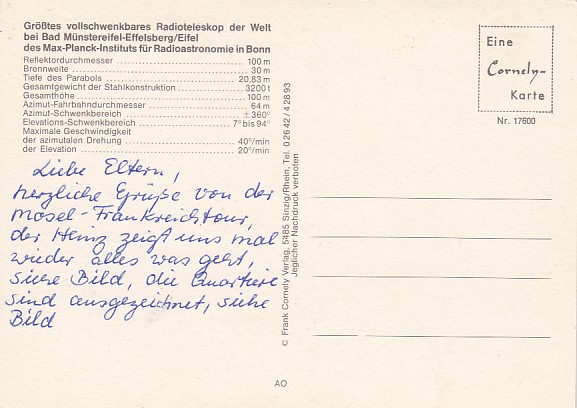 Größtes vollschwenkbares Radioteleskop der Welt
bei Bad Münstereifel-Effelsberg/Eifel
des Max-Planck-Instituts für Radioastronomie in Bonn
Reflektordurchmesser 100 m
Brennweite 30 m
Tiefe des Parabols 20,83 m
Gesamtgewicht der Stahlkonstruktion 3200 t
Gesamthöhe 100 m
Azimut-Fahrbahndurchmesser 64 m
Azimut-Schwenkbereich ± 360°
Elevations-Schwenkbereich 7° bis 94°
Maximale Geschwindigkeit
der azimutalen Drehung 40°/min
der Elevation 20°/min
Liebe Eltern,
herzliche Grüße von der
Mosel-Frankreichtour,
der Heinz zeigt uns mal
wieder alles was geht,
siehe Bild, die Quartiere
sind ausgezeichnet, siehe
Bild
© Frank Cornely Verlag, 5485 Sinzig/Rhein, Tel. 0 26 42 / 4 28 93
Jeglicher Nachdruck verboten
Eine
Cornely-
Karte
Nr. 17600
AO